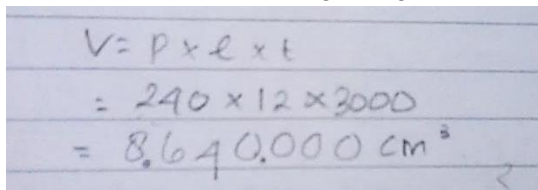 V = p x l x t
= 240 x 12 x 3000
= 8.640.000 cm³